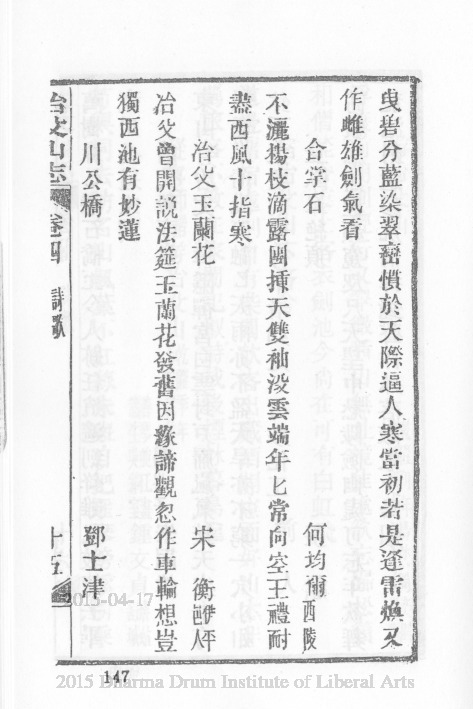 曳碧分藍染翠密慣於天際逼人寒當初若是逢雷煥又
作雌雄劍氣看
合掌石　何均爾西陵
不灑楊枝滴露團揷天雙袖没雲端年匕常向空王禮耐
盡西風十指寒
冶父玉蘭花　宋衡邑人
冶父曾開説法筵玉蘭花發舊因緣諦觀忽作車輪想豈
獨西池有妙蓮
川公橋　鄧士津
冶父山志 卷四 詩歌 十五
2015-04-17
147
2015 Dharma Drum Institute of Liberal Arts